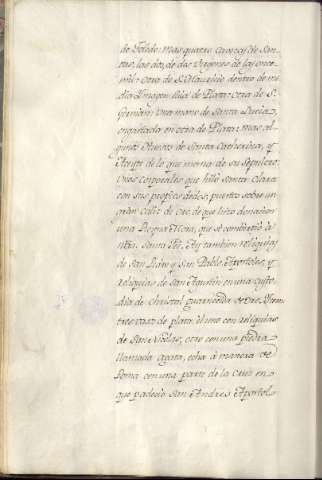 de Toledo: mas quatro cavezas de San-
tas, las dos, de dos Virgenes de las once
mil: otra de S. Mauricio dentro de me-
dia Ymagen suia de Plata: otra de S.
German: una mano de Santa Lucia,
engastada en otra de Plata: mas al-
gunos Huesos de Santa Catherina, y
Aceyte de lo que mana de su Sepulcro:
Unos corporales que hiló Santa Clara
con sus propios dedos, puestos sobre un
gran Caliz de oro, de que hizo donacion
una Reyna Mora, que se combirtió a
ntra. Santa Fée. Ay tambien reliquias
de San Pedro y San Pablo Apostoles, y
reliquias de San Agustin en una custo-
dia de christal guarnecida de oro. Yten
tres vasos de plata: el uno con reliquias
de San Nicolas, otro con una piedra
llamada agata, echa á manera de
Poma con una parte de la Cruz en
que padeció San Andres Apostol